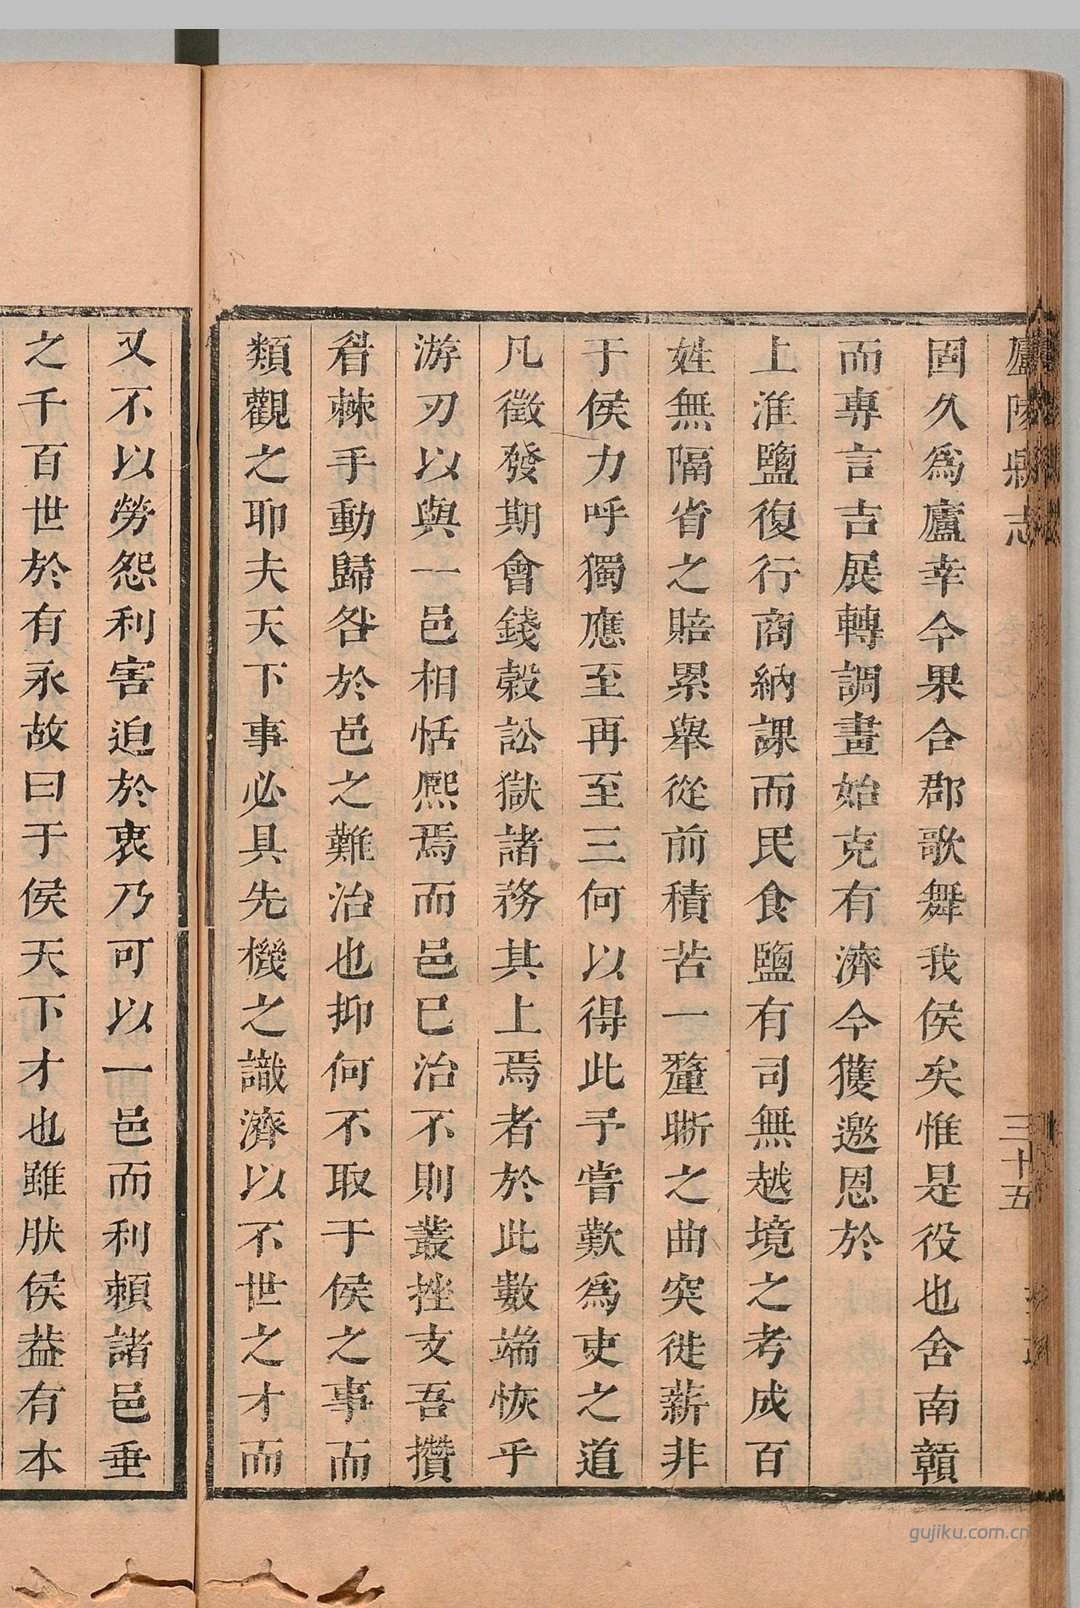 廬陵縣志
三十五
固久爲廬幸今果合郡歌舞我侯矣惟是役也舍南贛
而專言吉展轉調畫始克有濟今獲邀恩於
上淮鹽復行商納課而民食鹽有司無越境之考成百
姓無隔省之賠累舉從前積苦一釐晰之曲突徙薪非
于侯力呼獨應至再至三何以得此予嘗歎爲吏之道
凡徵發期會錢穀訟獄諸務其上焉者於此數端恢乎
游刃以與一邑相恬熙焉而邑已治不則叢挫支吾攢
眷棘手動歸咎於邑之難治也抑何不取于侯之事而
類觀之耶夫天下事必具先機之識濟以不世之才而
又不以勞怨利害迫於衷乃可以一邑而利賴諸邑垂
之千百世於有永故曰于侯天下才也雖肰侯益有本
gujiku.com.cn